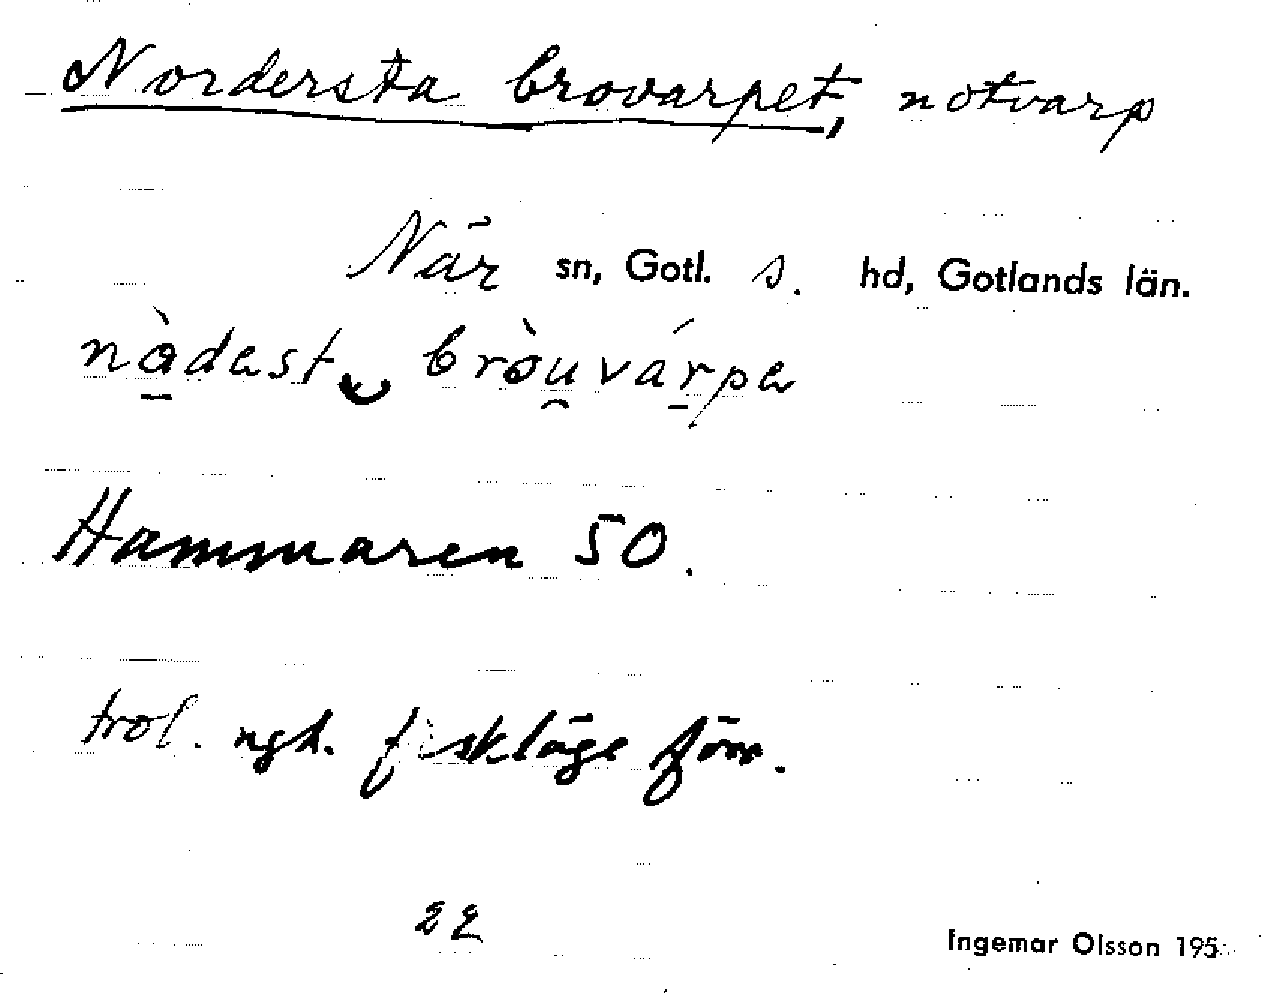 Nordersta brovarpet, notvarp
När sn, Gotl. s. hd, Gotlands län.
nàdast bròu várpa
Hammaren 50.
trol. ngt. fiskläge förr.
22
Ingemar Olsson 195